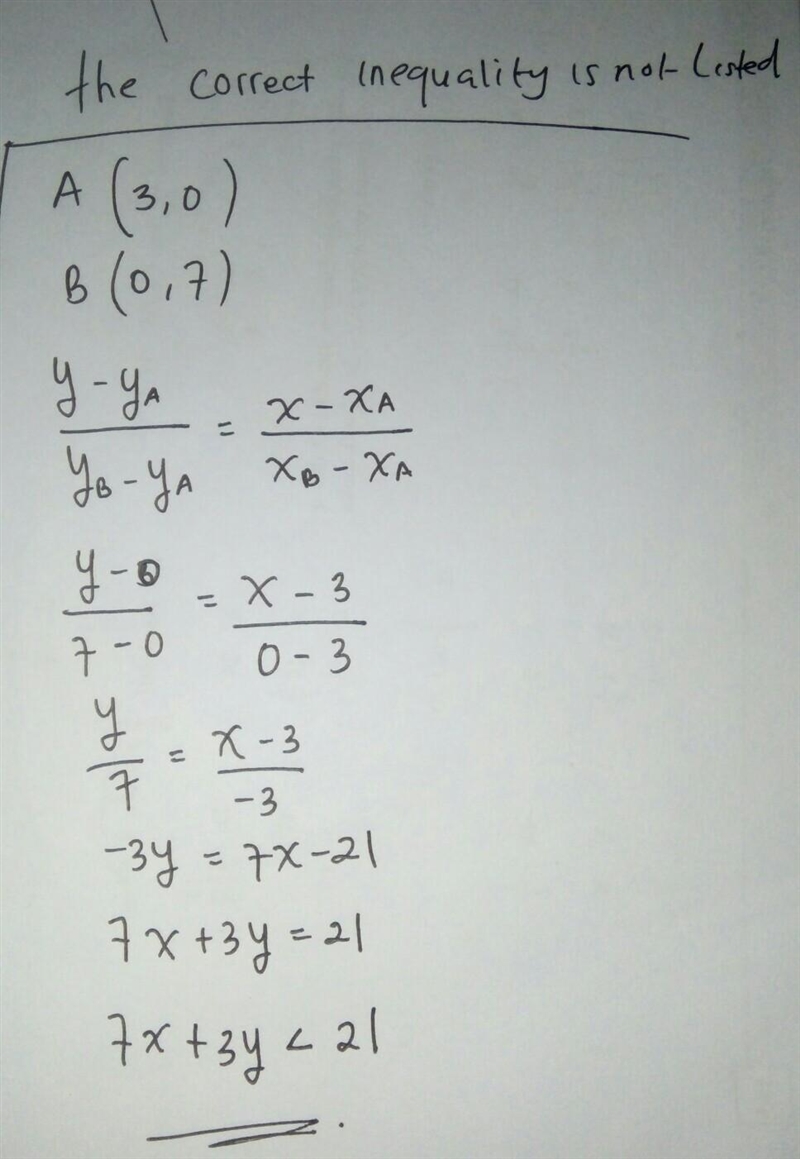 the correct inequality is not Listed
A (3,0)
B (0,7)
y - yA / yB - yA = x - xA / xB - xA
y - 0 / 7 - 0 = x - 3 / 0 - 3
y / 7 = x - 3 / -3
-3y = 7x - 21
7x + 3y = 21
7x + 3y < 21